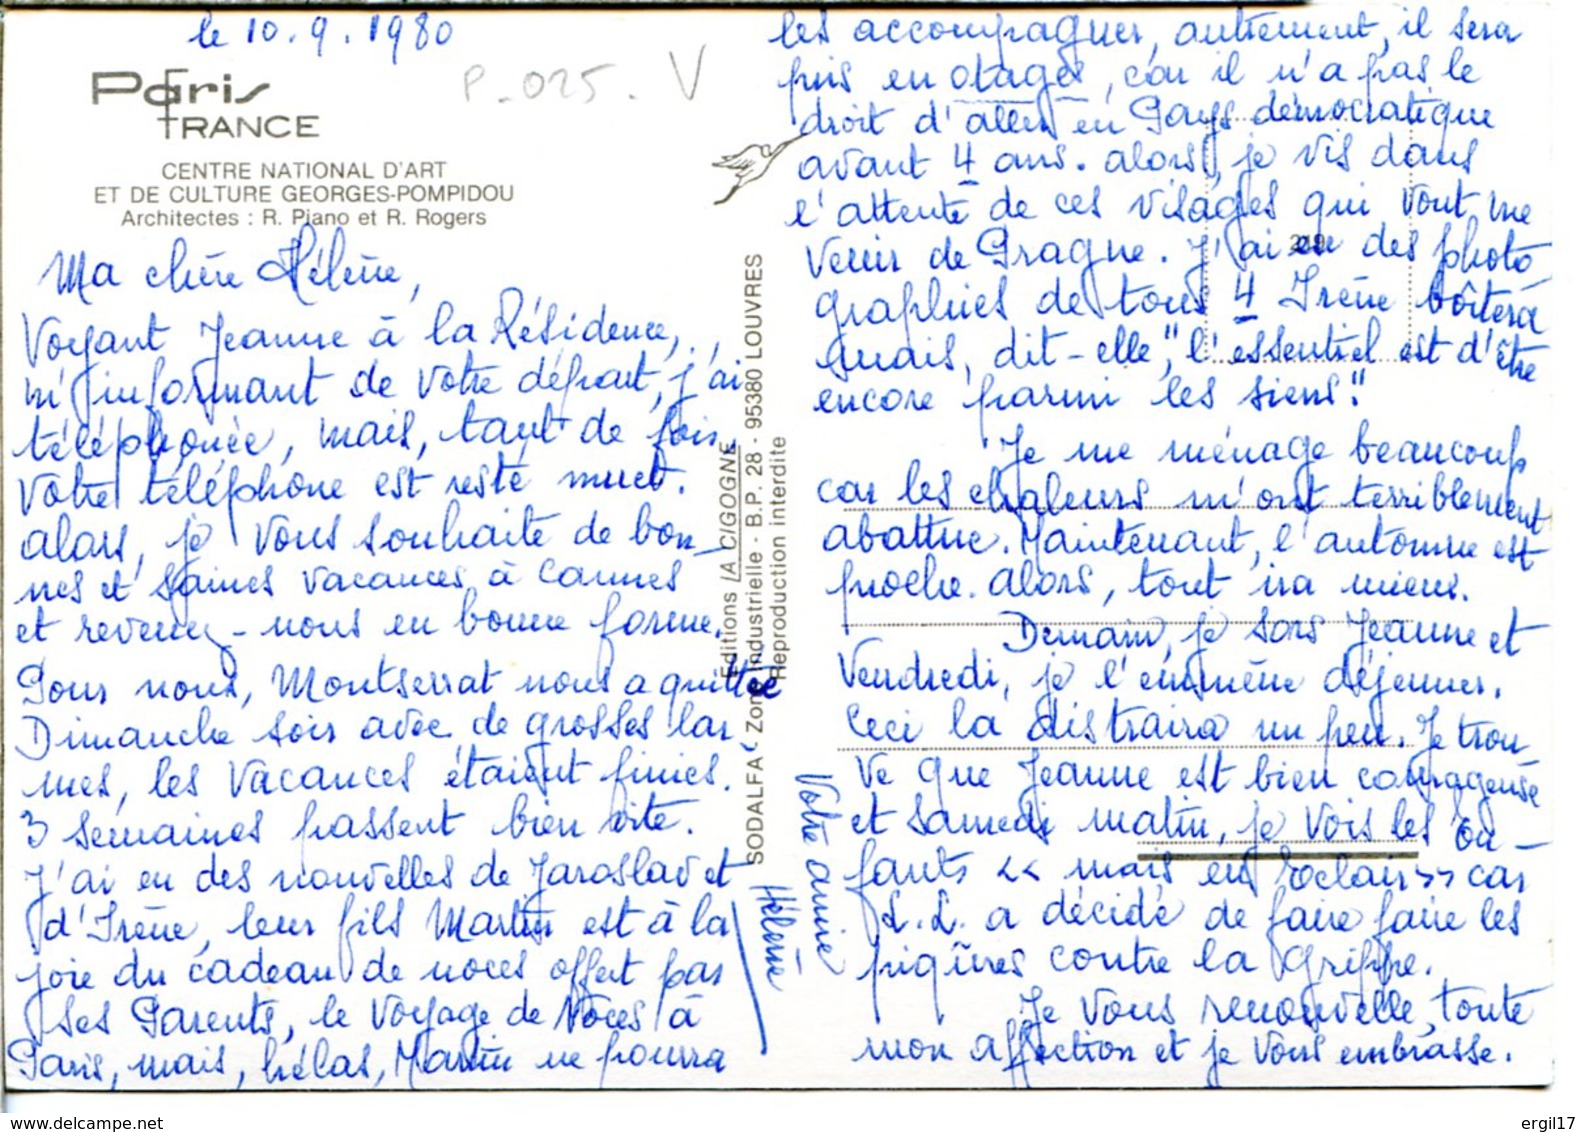 le 10.9.1980
P-025. V
Paris
FRANCE
CENTRE NATIONAL D'ART
ET DE CULTURE GEORGES-POMPIDOU
Architectes : R. Piano et R. Rogers
Ma chère Hélène,
Voyant Jeanne à la Résidence,
m'informant de votre départ, j'ai
téléphonée, mais, tant de fois,
votre téléphone est resté muet.
alors, je vous souhaite de bon-
nes et saines vacances à Cannes
et revenez-nous en bonne forme.
Pour nous, Montserrat nous a quittée
Dimanche soir avec de grosses lar
mes, les vacances étaient finies.
3 semaines passent bien vite.
J'ai eu des nouvelles de Jaroslav et
d'Irène, leur fils Martin est à la
joie du cadeau de noces offert par
ses Parents, le voyage de Noces à
Paris, mais, hélas, Martin ne pourra
Editions LA CIGOGNE
SODALFA - Zone Industrielle - B.P. 28 - 95380 LOUVRES
Reproduction interdite
les accompagner, autrement, il sera
pris en otages, car il n'a pas le
droit d'aller en Pays démocratique
avant 4 ans. alors, je vis dans
l'attente de ces visages qui vont me
venir de Prague. J'ai eu des photo
graphies de tous 4 Irène boîtera
mais, dit-elle, "l'essentiel est d'être
encore parmi les siens."
Je me ménage beaucoup
car les chaleurs m'ont terriblement
abattue. Maintenant, l'automne est
proche. alors, tout ira mieux.
Demain, je sors Jeanne et
Vendredi, je l'emmène déjeuner.
Ceci la distraira un peu. Je trou-
ve que Jeanne est bien courageuse
et samedi matin, je vois les En-
fants << mais en éclair >> car
L.L. a décidé de faire faire les
piqûres contre la Grippe.
Je vous renouvelle toute
mon affection et je vous embrasse.
Votre amie
Hélène
www.delcampe.net
ergil17